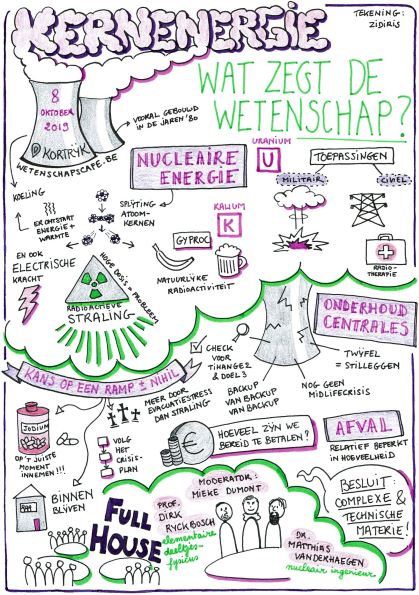 KERNENERGIE
TEKENING:
ZIDIRIS
WAT ZEGT DE
WETENSCHAP?
8
OKTOBER
2019
@ KORTRYK
WETENSCHAPSCAFE.BE
VOORAL GEBOUWD
IN DE JAREN '80
NUCLEAIRE
ENERGIE
URANIUM
U
TOEPASSINGEN
MILITAIR
CIVIEL
KOELING
ER ONTSTAAT
ENERGIE +
WARMTE
SPLIJTING
ATOOM-
KERNEN
KALIUM
K
GYPROC
NATUURLIJKE
RADIOACTIVITEIT
RADIO-
THERAPIE
EN OOK
ELECTRISCHE
KRACHT
HOGE DOSIS = PROBLEEM
RADIOACTIEVE
STRALING
ONDERHOUD
CENTRALES
CHECK
VOOR
TIHANGE2
& DOEL3
TWYFEL
= STILLEGGEN
BACKUP
VAN BACKUP
NOG GEEN
MIDLIFECRISIS
KANS OP EEN RAMP ± NIHIL
MEER DOOR
EVACUATIESTRESS
DAN STRALING
JODIUM
OP 'T JUISTE
MOMENT
INNEMEN!!!
VOLG
HET
CRISIS-
PLAN
€
HOEVEEL ZIJN WE
BEREID TE BETALEN?
AFVAL
RELATIEF BEPERKT
IN HOEVEELHEID
BINNEN
BLIJVEN
FULL
HOUSE
PROF.
DIRK
RYCKBOSCH
elementaire
deeltjes-
fysicus
MODERATOR:
MIEKE DUMONT
DR.
MATTHIAS
VANDERHAEGEN
nucleair ingenieur
BESLUIT:
COMPLEXE &
TECHNISCHE
MATERIE!